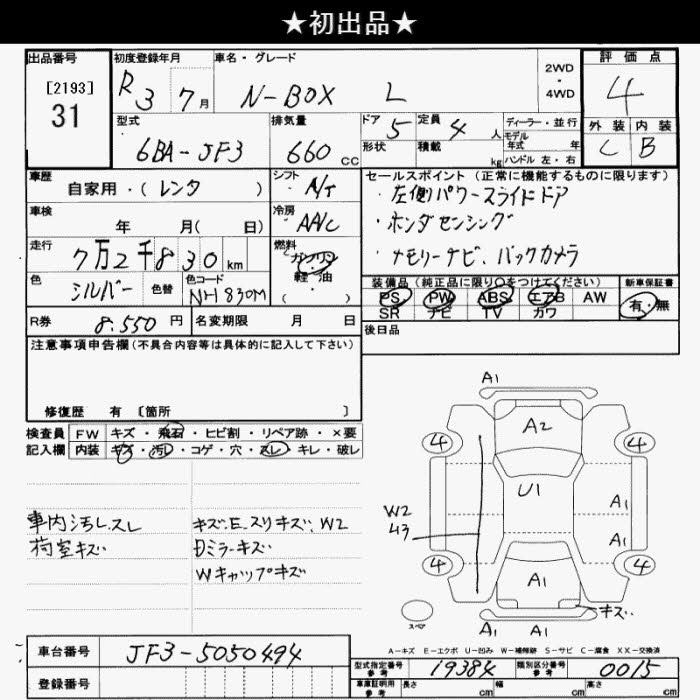 ★初出品★
出品番号 初度登録年月 車名・グレード 2WD・4WD 評価点
[2193] 31 R3 7月 N-BOX L 4
型式 排気量 ドア 5 定員 4人 ディーラー・並行 外装 内装
6BA-JF3 660 CC 形状 積載 kg モデル年式 年 ハンドル 左・右 C B
車歴 自家用・(レンタ) シフト A/T セールスポイント (正常に機能するものに限ります)
・左側パワースライドドア
車検 年 月( 日) 冷房 AA/C ・ホンダセンシング
走行 7万2千830km 燃料 ガソリン 軽・油 ( ) ・メモリーナビ、バックカメラ
色 シルバー 色替 色コード NH830M
装備品 (純正品に限り○をつけてください) 新車保証書
PS PW ABS エアB AW 有・無
SR ナビ TV カワ
R券 8.550 円 名変期限 月 日
後日品
注意事項申告欄(不具合内容等は具体的に記入して下さい)
修復歴 有 〔箇所 〕
検査員記入欄 FW キズ・飛石・ヒビ割・リペア跡・×要
内装 キズ・汚レ・コゲ・穴・スレ・キレ・破レ
車内汚レ、スレ
荷室キズ
キズ、E、スリキズ、W2
Dミラーキズ
Wキャップキズ
A1
A2
4 4
U1
W2
43
A1
A1
4 4
A1
キズ
スペア
A1 A1
A-キズ E-エクボ U-凹み W-補修跡 S-サビ C-腐食 XX-交換済
車台番号 JF3-5050494
登録番号
型式指定番号 参考 19384 類別区分番号 参考 0015
車庫証明用 参考 長さ cm 幅 cm 高さ cm